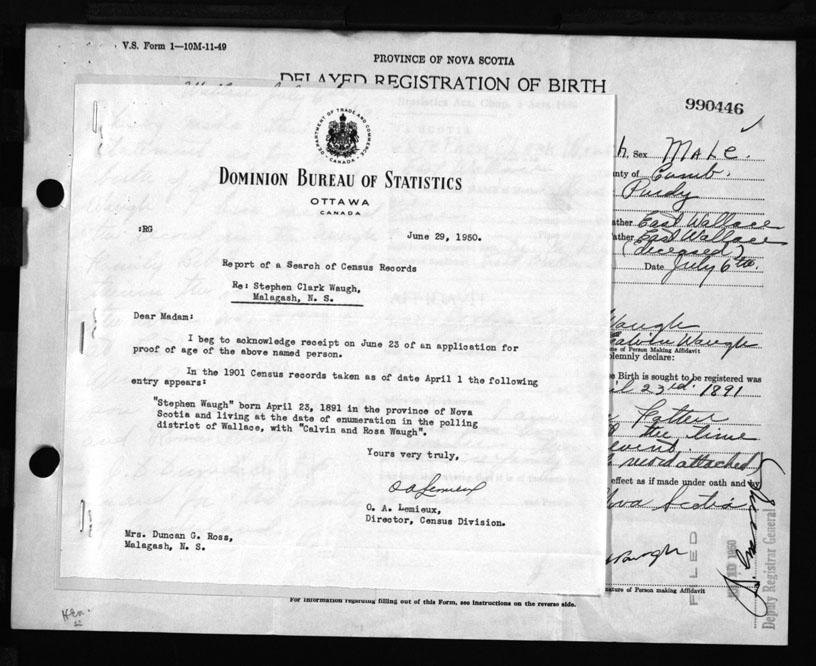 V.S. Form 1—10M-11-49
PROVINCE OF NOVA SCOTIA
DELAYED REGISTRATION OF BIRTH
990446
DEPARTMENT OF TRADE AND COMMERCE
CANADA
DOMINION BUREAU OF STATISTICS
OTTAWA
CANADA
:RG
June 29, 1950.
Report of a Search of Census Records
Re: Stephen Clark Waugh,
Malagash, N. S.
Dear Madam:
I beg to acknowledge receipt on June 23 of an application for
proof of age of the above named person.
In the 1901 Census records taken as of date April 1 the following
entry appears:
"Stephen Waugh" born April 23, 1891 in the province of Nova
Scotia and living at the date of enumeration in the polling
district of Wallace, with "Calvin and Rosa Waugh".
Yours very truly,
O A Lemieux
O. A. Lemieux,
Director, Census Division.
Mrs. Duncan G. Ross,
Malagash, N. S.
h, Sex Male.
nty of Cumb.
Purdy
ather East Wallace
ather East Wallace
(deceased)
Date July 6th.
Waugh
Calvin Waugh
me of Person Making Affidavit
olemnly declare:
e Birth is sought to be registered was
il 23rd. 1891
the time
event.
attached
effect as if made under oath and
ova Scotia
Waugh
nature of Person making Affidavit
FILED
1950
Deputy Registrar General
For information regarding filling out of this Form, see instructions on the reverse side.